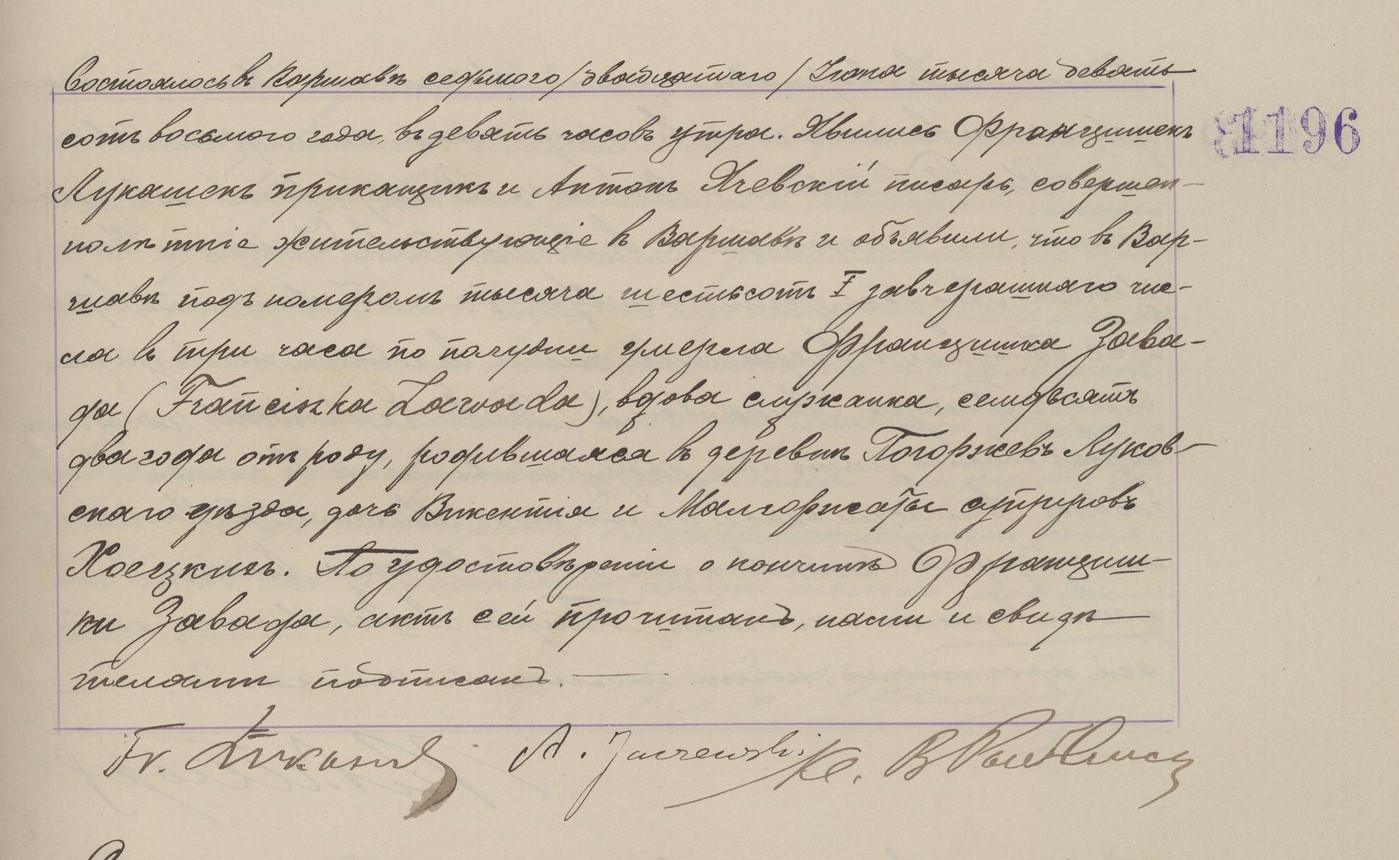 Состоялось въ Варшавѣ седьмого /двадцатаго/ Iюня тысяча девять-
1196
сотъ восьмого года, въ девять часовъ утра. Явились Францишекъ
Лукашекъ прикащикъ и Антонъ Ячевскiй писарь, совершен-
нолѣтнiе жительствующiе въ Варшавѣ и объявили, что въ Вар-
шавѣ подъ номеромъ тысяча шестьсотъ I завчерашняго чис-
ла въ три часа по полудни умерла Францишка Зава-
да (Franciszka Zawada), вдова служанка, семдѣсятъ
два года отъ роду, родившаяся въ деревнѣ Погоржевъ Луков-
скаго уѣзда, дочь Викентiя и Малгоржаты супруговъ
По удостовѣренiи о кончинѣ Францишки-
ки Завада, актъ сей прочитанъ, нами и свидѣ-
телями подписанъ.
Fr. Łukaszek A. Jaczewski K.